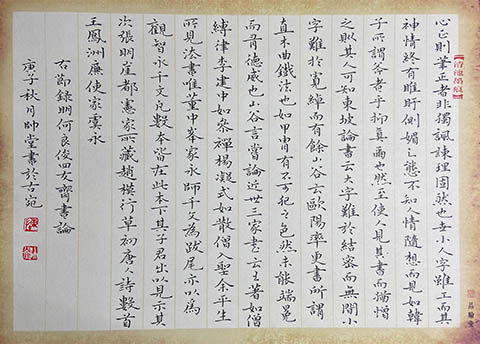 心正則筆正者非獨諷諫理固然也世小人字雖工而其
神情終有睢盱側媚之態不知人情隨想而見如韓
子所謂者乎抑真爾也然至使人見其書而猶憎
之則其人可知東坡論書云大字難於結密而無間小
字難於寬綽而有餘山谷云歐陽率更書所謂
直木曲鐵法也如甲冑有不可犯之色然未能端冕
而有德威也山谷言嘗論近世三家書云王著如僧
縛律李建中如參禪楊凝式如散僧入聖余平生
所見法書唯重中峯家永師千文為跋尾亦以為
觀智永千文凡數本當在此本下其子君出以見示其
次張明崖都憲家所藏趙模行草初唐人詩數首
王鳳洲廉使家虞永
右節錄明何良俊四友齋書論
庚子秋月帥堂書於古宛